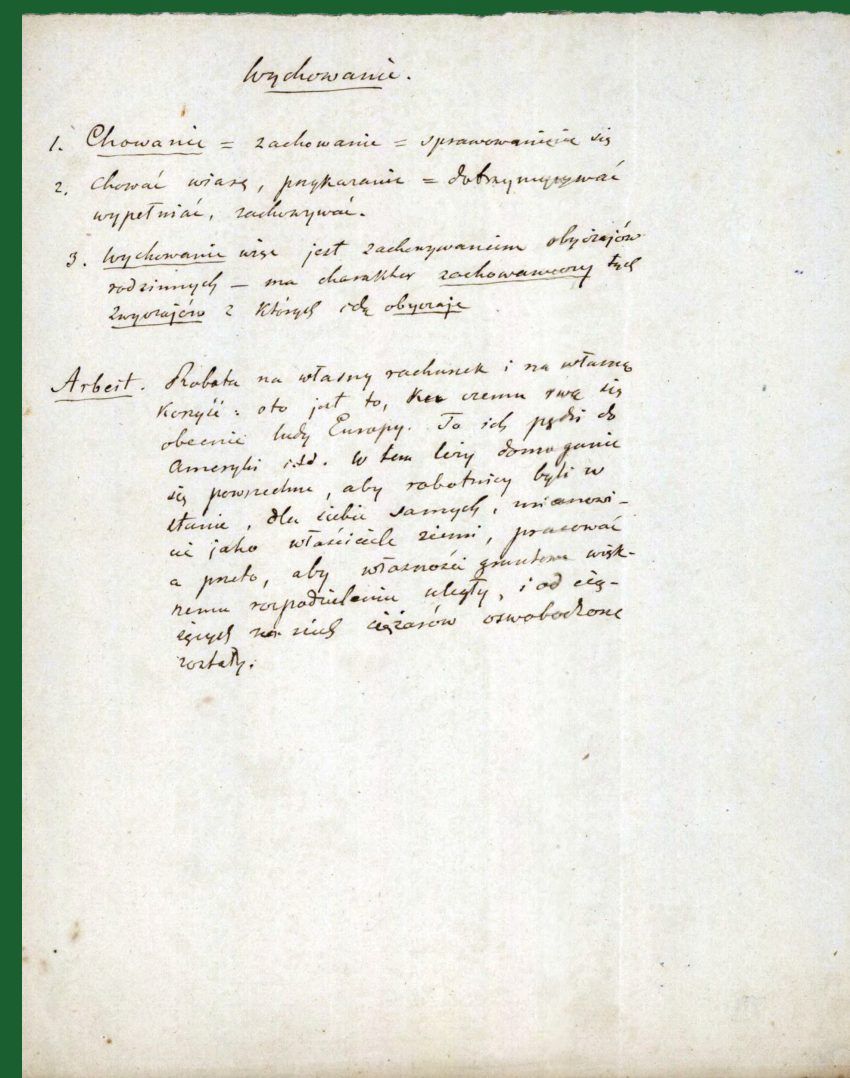 Wychowanie.
1. Chowanie = zachowanie = sprawowanie się
2. Chować wiarę, przykazanie = dotrzymywać
wypełniać, zachowywać.
3. Wychowanie więc jest zachowywaniem obyczajów
rodzinnych — ma charakter zachowawczy tych
zwyczajów z których idą obyczaje
Arbeit. Robota na własny rachunek i na własną
korzyść: oto jest to, ku czemu rwą się
obecnie ludy Europy. To ich pędzi do
Ameryki itd. W tem leży domaganie
się powszechne, aby robotnicy byli w
stanie, dla siebie samych, mianowi-
cie jako właściciele ziemi, pracować
a przeto, aby własności gruntowe więk-
szemu rozpodzieleniu uległy, i od cię-
żących na nich ciężarów oswobodzone
zostały.